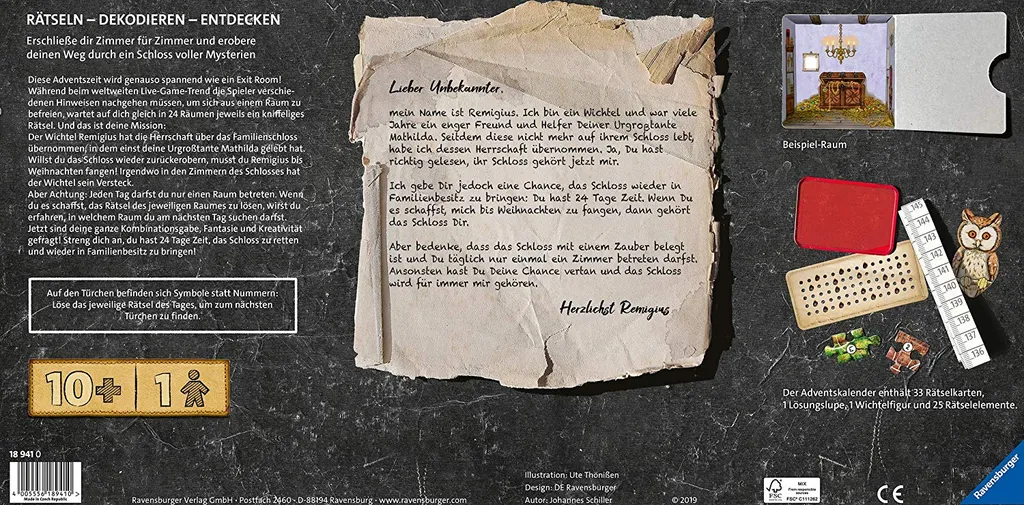 RÄTSELN – DEKODIEREN – ENTDECKEN
Erschließe dir Zimmer für Zimmer und erobere
deinen Weg durch ein Schloss voller Mysterien
Diese Adventszeit wird genauso spannend wie ein Exit Room!
Während beim weltweiten Live-Game-Trend die Spieler verschie-
denen Hinweisen nachgehen müssen, um sich aus einem Raum zu
befreien, wartet auf dich gleich in 24 Räumen jeweils ein kniffeliges
Rätsel. Und das ist deine Mission:
Der Wichtel Remigius hat die Herrschaft über das Familienschloss
übernommen, in dem einst deine Urgroßtante Mathilda gelebt hat.
Willst du das Schloss wieder zurückerobern, musst du Remigius bis
Weihnachten fangen! Irgendwo in den Zimmern des Schlosses hat
der Wichtel sein Versteck.
Aber Achtung: Jeden Tag darfst du nur einen Raum betreten. Wenn
du es schaffst, das Rätsel des jeweiligen Raumes zu lösen, wirst du
erfahren, in welchem Raum du am nächsten Tag suchen darfst.
Jetzt sind deine ganze Kombinationsgabe, Fantasie und Kreativität
gefragt! Streng dich an, du hast 24 Tage Zeit, das Schloss zu retten
und wieder in Familienbesitz zu bringen!
Auf den Türchen befinden sich Symbole statt Nummern:
Löse das jeweilige Rätsel des Tages, um zum nächsten
Türchen zu finden.
10+ 1
18 941 0
4 005556 189410 >
Made in Czech Republic
Ravensburger Verlag GmbH · Postfach 2460 · D-88194 Ravensburg · www.ravensburger.com
Lieber Unbekannter,
mein Name ist Remigius. Ich bin ein Wichtel und war viele
Jahre ein enger Freund und Helfer Deiner Urgroßtante
Mathilda. Seitdem diese nicht mehr auf ihrem Schloss lebt,
habe ich dessen Herrschaft übernommen. Ja, Du hast
richtig gelesen, ihr Schloss gehört jetzt mir.
Ich gebe Dir jedoch eine Chance, das Schloss wieder in
Familienbesitz zu bringen: Du hast 24 Tage Zeit. Wenn Du
es schaffst, mich bis Weihnachten zu fangen, dann gehört
das Schloss Dir.
Aber bedenke, dass das Schloss mit einem Zauber belegt
ist und Du täglich nur einmal ein Zimmer betreten darfst.
Ansonsten hast Du Deine Chance vertan und das Schloss
wird für immer mir gehören.
Herzlichst Remigius
Illustration: Ute Thönißen
Design: DE Ravensburger
Autor: Johannes Schiller
© 2019
Beispiel-Raum
145
144
143
142
141
140
139
138
137
136
C
2
Der Adventskalender enthält 33 Rätselkarten,
1 Lösungslupe, 1 Wichtelfigur und 25 Rätselelemente.
FSC
www.fsc.org
MIX
From responsible
sources
FSC® C111262
CE
Ravensburger